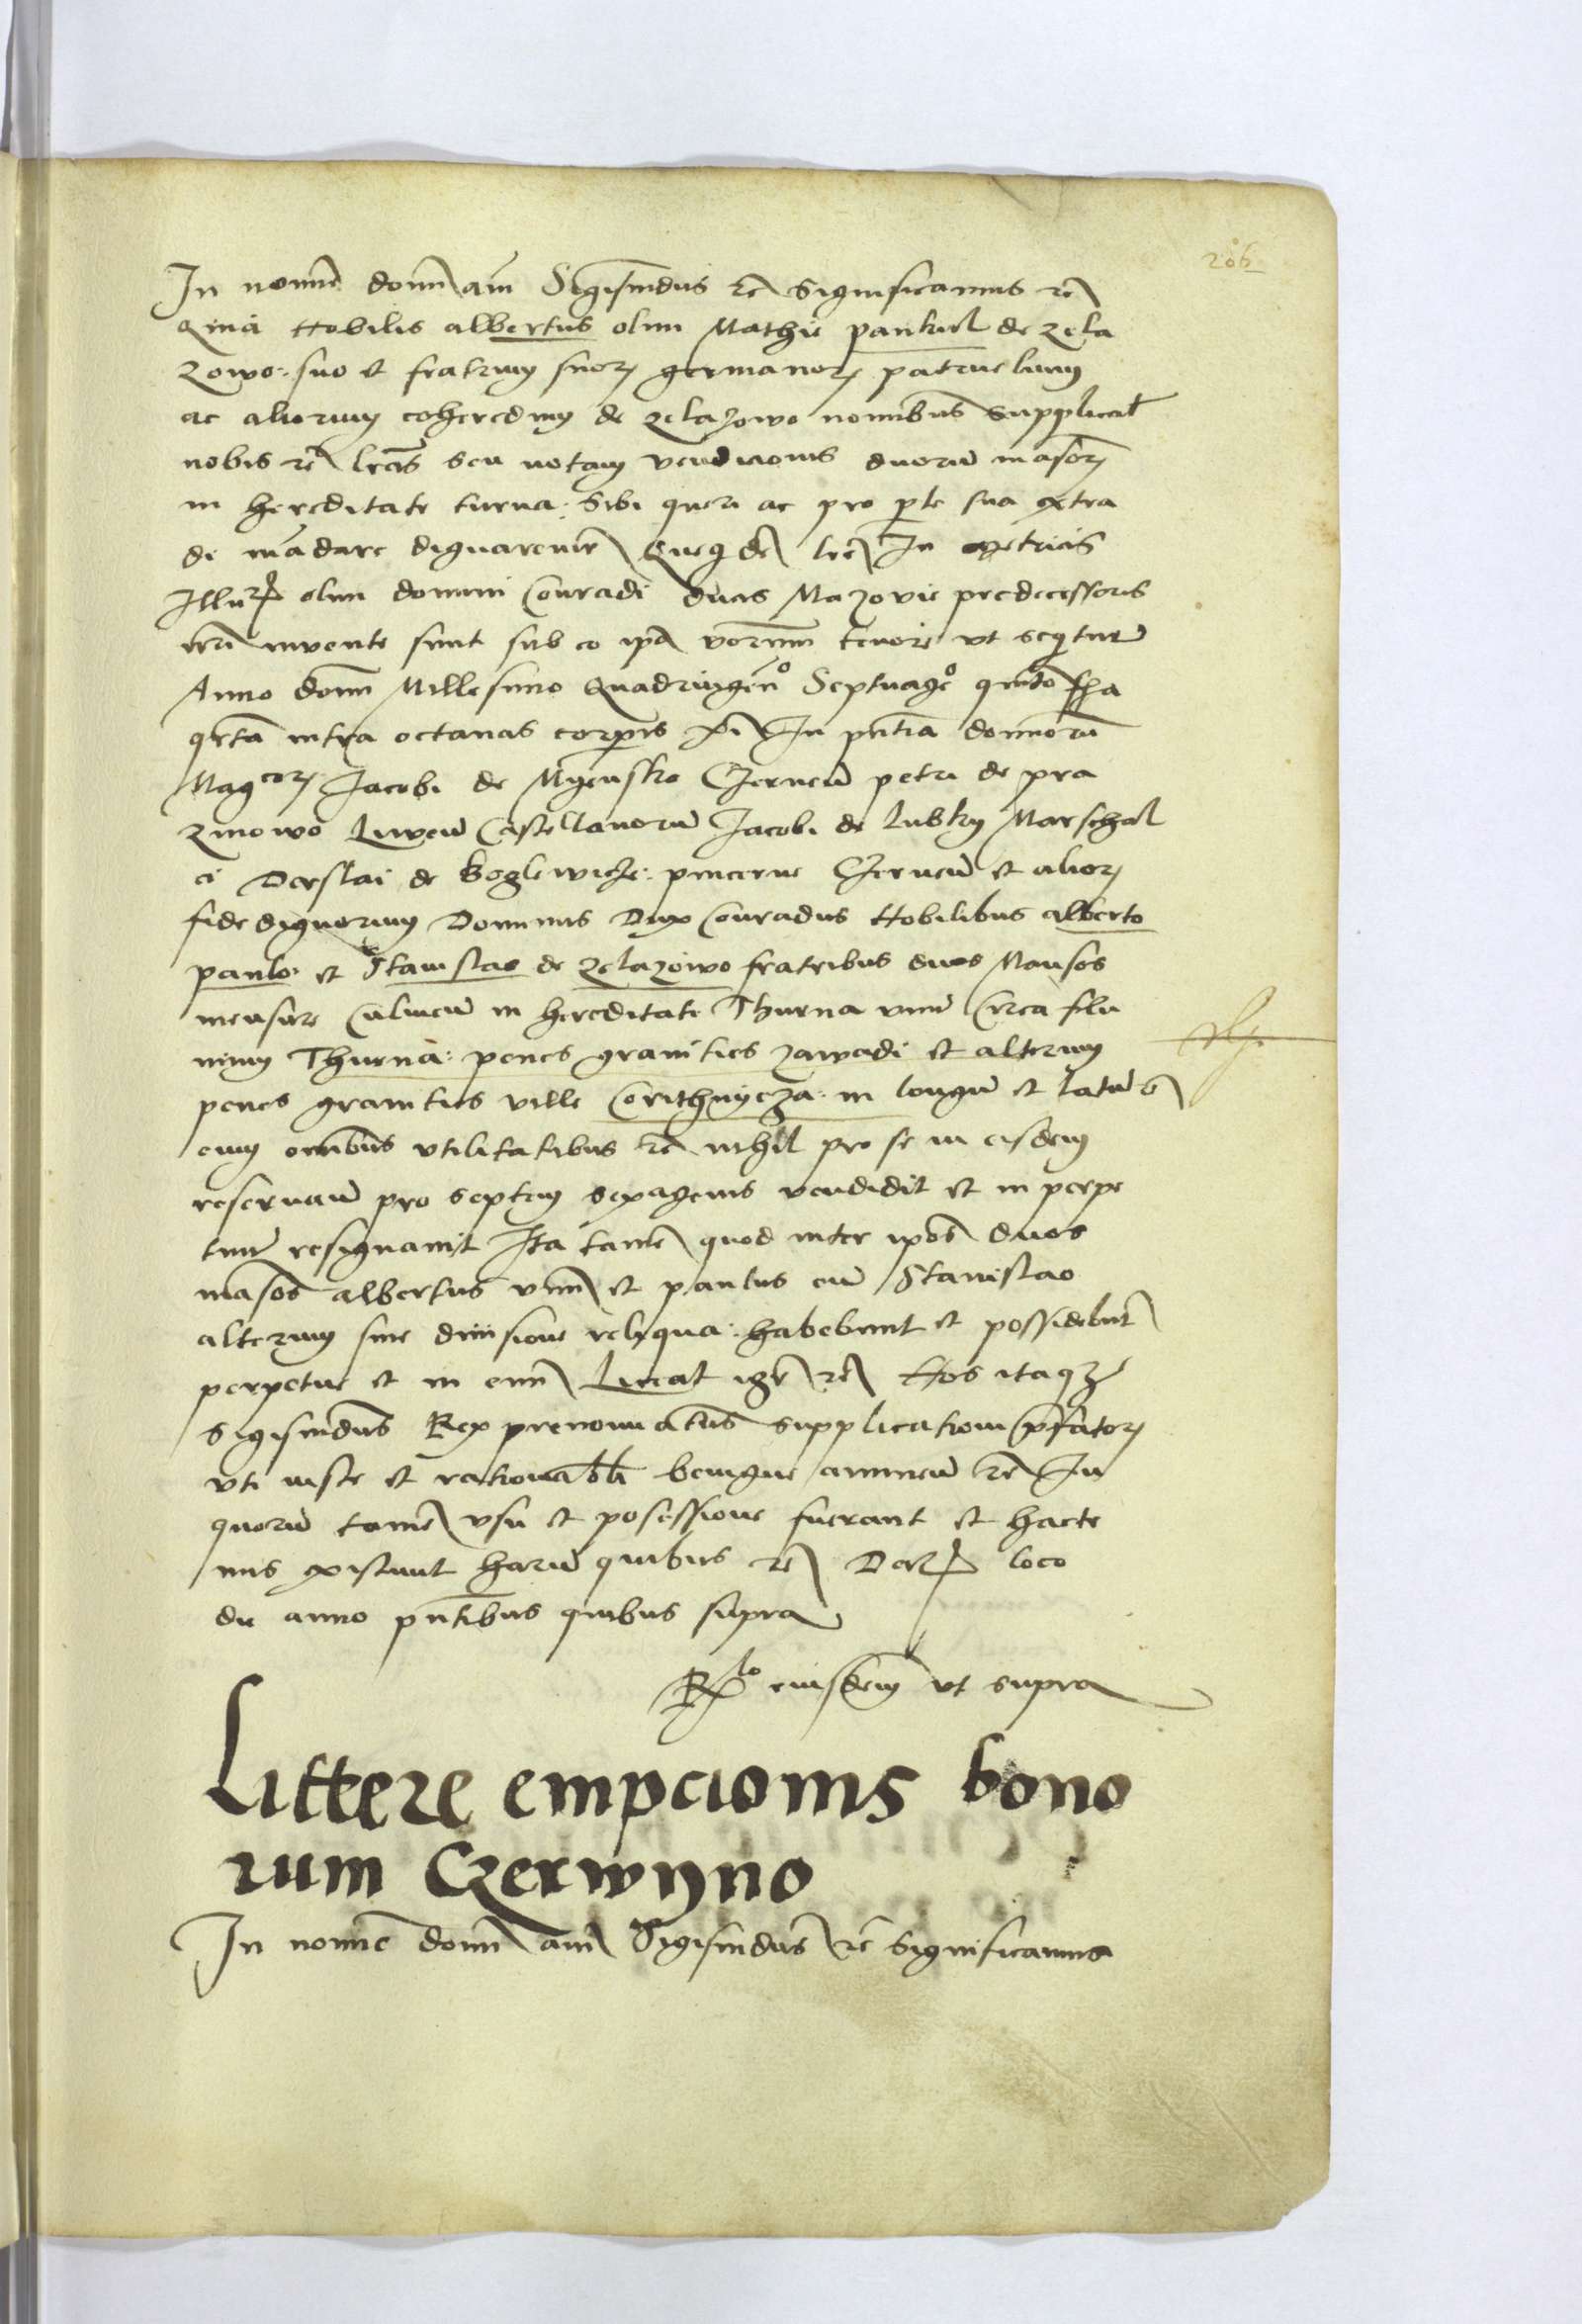 206
In nomine domini amen Sigismundus etc Significamus etc
Quia Nobilis albertus olim Mathie pankul de zela
zowo suo et fratrum suorum germanorum patruelium
ac aliorum coheredum de zelazowo nominibus supplicavit
nobis etc literas seu notam vendicionis duorum mansorum
in hereditate turna sibi queri ac pro parte sua extra
di mandare dignaremur Quequidem litere In metricis
Illustris olim domini Conradi ducis Mazovie predecessoris
nostri invente sunt sub eo ipso verborum tenore ut sequitur
Anno domini Millesimo Quadringen⁰ Septuage⁰ quinto feria
quarta intra octavas corporis xpi In presentia dominorum
Magcorum Jacobi de Myensko Czernen petri de pra
zmowo Liwen Castellanorum Jacobi de lubky Marschal
ci Derslai de boglewicze pincerne Czernen et aliorum
fide dignorum Dominus Dux Conradus Nobilibus alberto
paulo et Stanislao de zelazowo fratribus duos Mansos
mensure Culmen in hereditate Thurna unum Circa flu
vium Thurna penes granities zawadi et alterum
penes granities ville Corithnycza in longum et latum
cum omnibus utilitatibus etc nihil pro se in eisdem
reservan pro septem sexagenis vendidit et in perpe
tuum resignavit Ita tamen quod inter ipsos duos
mansos albertus unum et paulus cum Stanislao
alterum sine divisione reliqua habebunt et possidebunt
perpetue et in evum Liceat igitur etc Nos itaque
Sigismundus Rex prenominatus supplicationi prefatorum
uti iuste et rationabili benigne annuen etc In
quorum tamen usu et possessione fuerant et hacte
nus existunt harum quibus etc Datum loco
die anno presentibus quibus supra
Relatio eiusdem ut supra
Littere empcionis bono
rum Czerwyno
In nomine domini amen Sigismundus etc Significamus